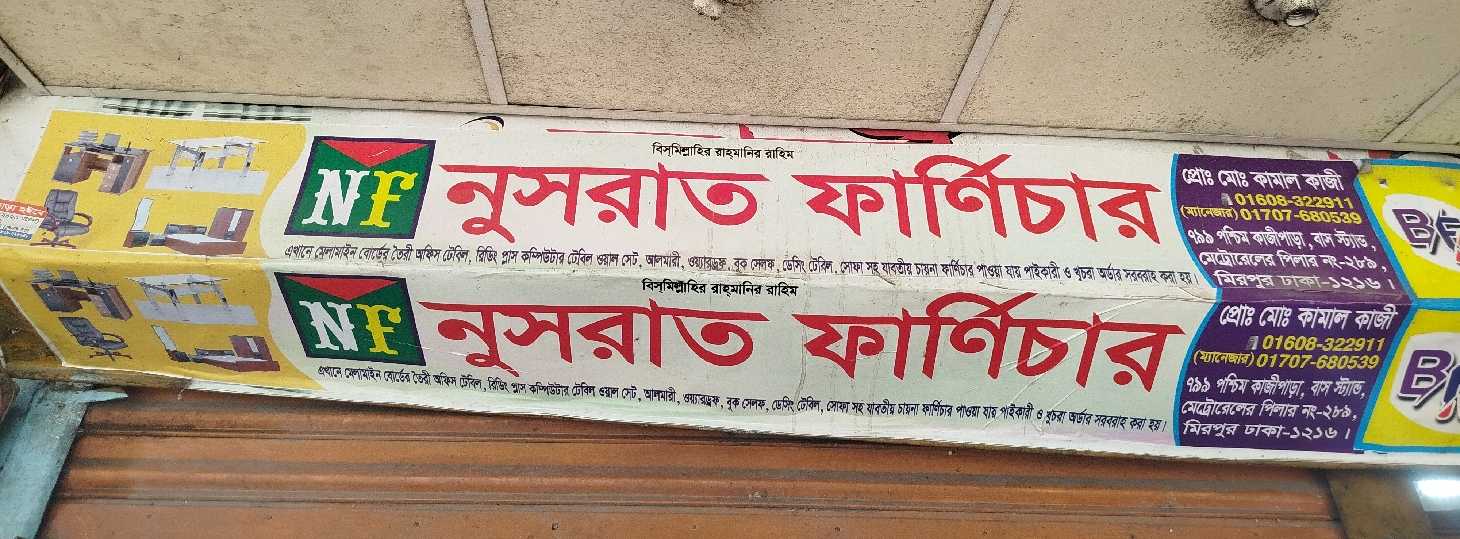 বিস্‌মিল্লাহির রাহ্‌মানির রাহিম
NF নুসরাত ফার্ণিচার
এখানে মেলামাইন বোর্ডের তৈরী অফিস টেবিল, রিডিং প্লাস কম্পিউটার টেবিল ওয়াল সেট, আলমারী, ওয়্যারড্রফ, বুক সেলফ, ডেসিং টেবিল, সোফা সহ যাবতীয় চায়না ফার্ণিচার পাওয়া যায় পাইকারী ও খুচরা অর্ডার সরবরাহ করা হয়।
প্রোঃ মোঃ কামাল কাজী
01608-322911
(ম্যানেজার) 01707-680539
৭৯৯ পশ্চিম কাজীপাড়া, বাস স্ট্যান্ড,
মেট্রোরেলের পিলার নং-২৮৯,
মিরপুর ঢাকা-১২১৬।
বিস্‌মিল্লাহির রাহ্‌মানির রাহিম
NF নুসরাত ফার্ণিচার
এখানে মেলামাইন বোর্ডের তৈরী অফিস টেবিল, রিডিং প্লাস কম্পিউটার টেবিল ওয়াল সেট, আলমারী, ওয়্যারড্রফ, বুক সেলফ, ডেসিং টেবিল, সোফা সহ যাবতীয় চায়না ফার্ণিচার পাওয়া যায় পাইকারী ও খুচরা অর্ডার সরবরাহ করা হয়।
প্রোঃ মোঃ কামাল কাজী
01608-322911
(ম্যানেজার) 01707-680539
৭৯৯ পশ্চিম কাজীপাড়া, বাস স্ট্যান্ড,
মেট্রোরেলের পিলার নং-২৮৯,
মিরপুর ঢাকা-১২১৬।